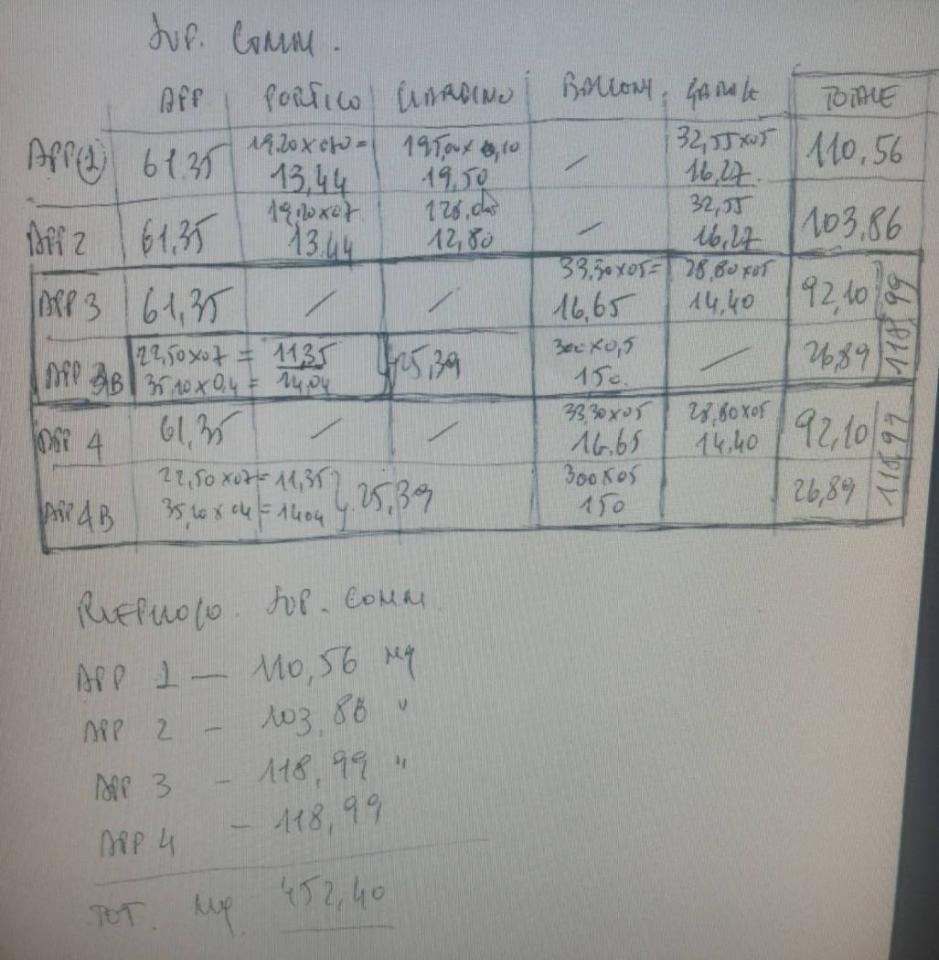 SUP. COMM.
APP PORTICO GIARDINO BALCONI GARAGE TOTALE
APP(1) 61,35 19,20x070= 13,44 195,00x0,10 19,50 / 32,55x05 16,27 110,56
APP 2 61,35 19,20x07 13,44 128,00 12,80 / 32,55 16,27 103,86
APP 3 61,35 / / 33,30x05= 16,65 28,80x05 14,40 92,10 118,99
APP 3B 22,50x07 = 11,35 35,10x0,4 = 14,04 25,39 300x0,5 150 / 26,89
APP 4 61,35 / / 33,30x05 16,65 28,80x05 14,40 92,10 118,99
APP 4B 22,50x07= 11,35 35,10x04 = 1404 25,39 300x05 150 26,89
RIEPILOGO. SUP. COMM.
APP 1 — 110,56 Mq
APP 2 - 103,86 "
APP 3 - 118,99 "
APP 4 - 118,99
TOT. Mq. 452,40